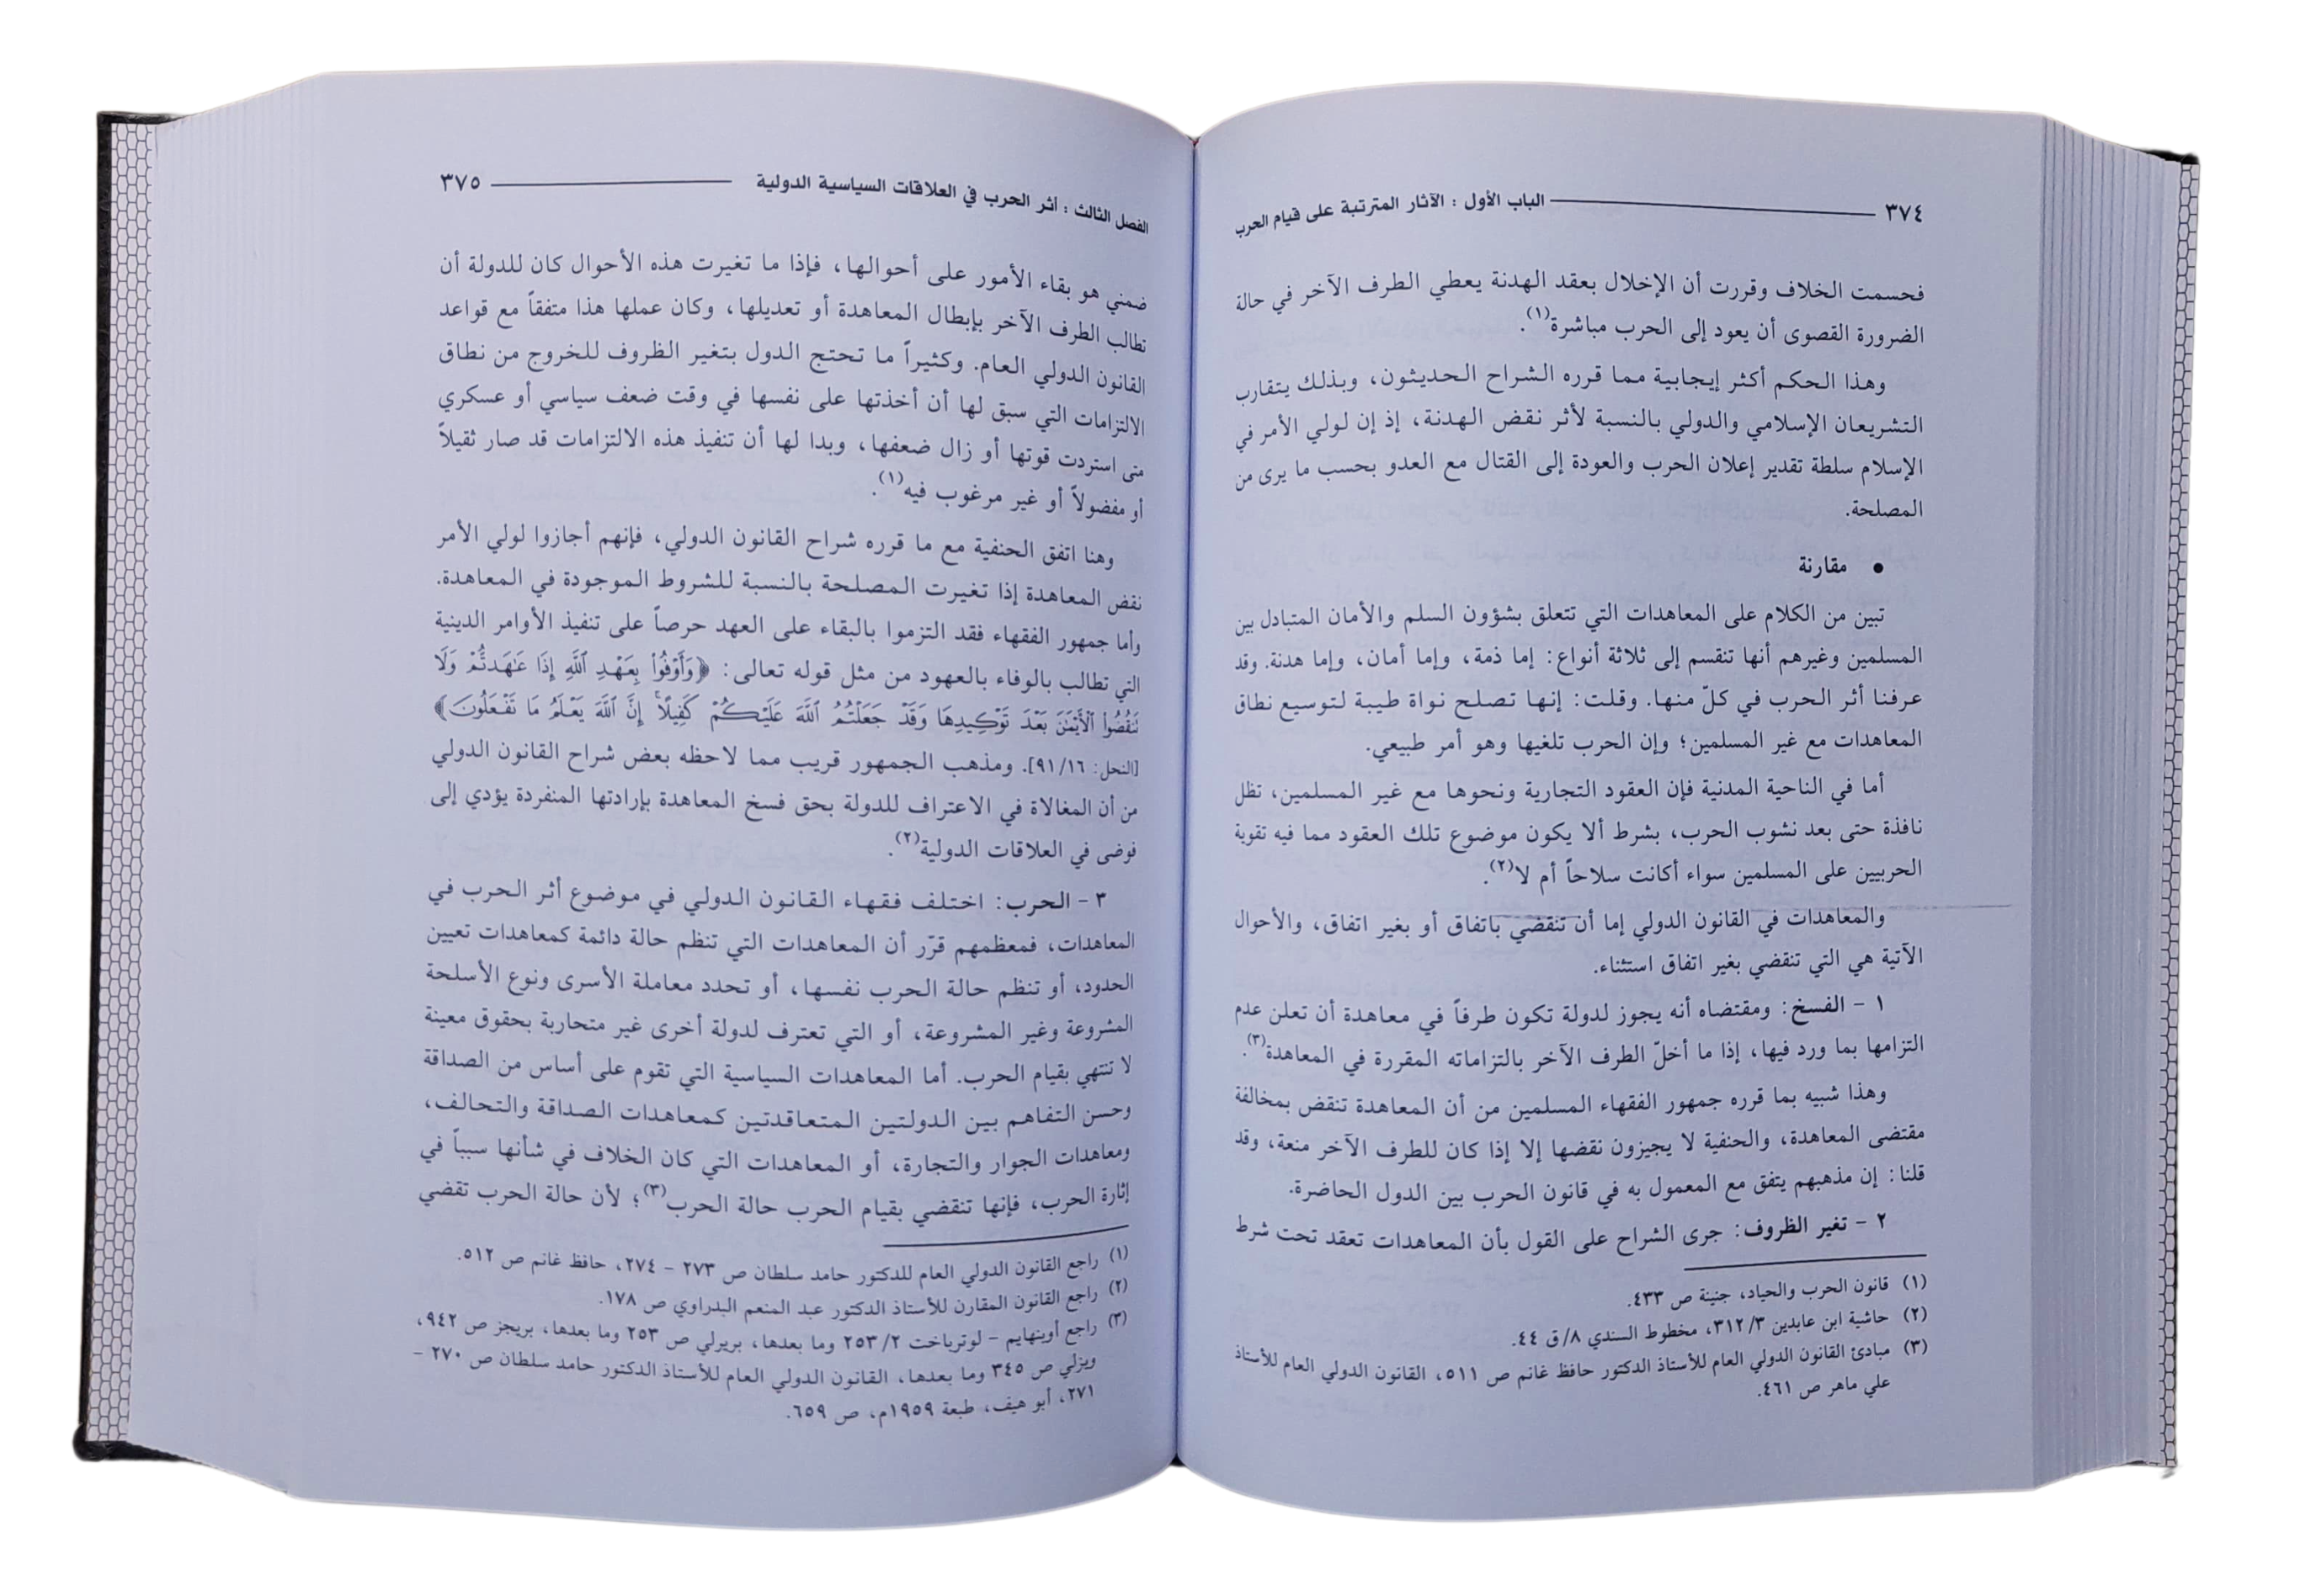 ٣٧٤ الباب الأول : الآثار المترتبة على قيام الحرب
فحسمت الخلاف وقررت أن الإخلال بعقد الهدنة يعطي الطرف الآخر في حالة
الضرورة القصوى أن يعود إلى الحرب مباشرة(١).
وهذا الحكم أكثر إيجابية مما قرره الشراح الحديثون، وبذلك يتقارب
التشريعان الإسلامي والدولي بالنسبة لأثر نقض الهدنة، إذ إن لولي الأمر في
الإسلام سلطة تقدير إعلان الحرب والعودة إلى القتال مع العدو بحسب ما يرى من
المصلحة.
• مقارنة
تبين من الكلام على المعاهدات التي تتعلق بشؤون السلم والأمان المتبادل بين
المسلمين وغيرهم أنها تنقسم إلى ثلاثة أنواع: إما ذمة، وإما أمان، وإما هدنة. وقد
عرفنا أثر الحرب في كلّ منها. وقلت: إنها تصلح نواة طيبة لتوسيع نطاق
المعاهدات مع غير المسلمين؛ وإن الحرب تلغيها وهو أمر طبيعي.
أما في الناحية المدنية فإن العقود التجارية ونحوها مع غير المسلمين، تظل
نافذة حتى بعد نشوب الحرب، بشرط ألا يكون موضوع تلك العقود مما فيه تقوية
الحربيين على المسلمين سواء أكانت سلاحاً أم لا(٢).
والمعاهدات في القانون الدولي إما أن تنقضي باتفاق أو بغير اتفاق، والأحوال
الآتية هي التي تنقضي بغير اتفاق استثناء.
١ - الفسخ: ومقتضاه أنه يجوز لدولة تكون طرفاً في معاهدة أن تعلن عدم
التزامها بما ورد فيها، إذا ما أخلّ الطرف الآخر بالتزاماته المقررة في المعاهدة(٣).
وهذا شبيه بما قرره جمهور الفقهاء المسلمين من أن المعاهدة تنقض بمخالفة
مقتضى المعاهدة، والحنفية لا يجيزون نقضها إلا إذا كان للطرف الآخر منعة، وقد
قلنا: إن مذهبهم يتفق مع المعمول به في قانون الحرب بين الدول الحاضرة.
٢ - تغير الظروف: جرى الشراح على القول بأن المعاهدات تعقد تحت شرط
(١) قانون الحرب والحياد، جنينة ص ٤٣٣.
(٢) حاشية ابن عابدين ٣١٢/٣، مخطوط السندي ٨/ق ٤٤.
(٣) مبادئ القانون الدولي العام للأستاذ الدكتور حافظ غانم ص ٥١١، القانون الدولي العام للأستاذ
علي ماهر ص ٤٦١.
الفصل الثالث : أثر الحرب في العلاقات السياسية الدولية ٣٧٥
ضمني هو بقاء الأمور على أحوالها، فإذا ما تغيرت هذه الأحوال كان للدولة أن
تطالب الطرف الآخر بإبطال المعاهدة أو تعديلها، وكان عملها هذا متفقاً مع قواعد
القانون الدولي العام. وكثيراً ما تحتج الدول بتغير الظروف للخروج من نطاق
الالتزامات التي سبق لها أن أخذتها على نفسها في وقت ضعف سياسي أو عسكري
متى استردت قوتها أو زال ضعفها، وبدا لها أن تنفيذ هذه الالتزامات قد صار ثقيلاً
أو مفضولاً أو غير مرغوب فيه(١).
وهنا اتفق الحنفية مع ما قرره شراح القانون الدولي، فإنهم أجازوا لولي الأمر
نقض المعاهدة إذا تغيرت المصلحة بالنسبة للشروط الموجودة في المعاهدة.
وأما جمهور الفقهاء فقد التزموا بالبقاء على العهد حرصاً على تنفيذ الأوامر الدينية
التي تطالب بالوفاء بالعهود من مثل قوله تعالى: ﴿وَأَوْفُواْ بِعَهْدِ ٱللَّهِ إِذَا عَٰهَدتُّمْ وَلَا
نَنقُضُواْ ٱلْأَيْمَٰنَ بَعْدَ تَوْكِيدِهَا وَقَدْ جَعَلْتُمُ ٱللَّهَ عَلَيْكُمْ كَفِيلًاۚ إِنَّ ٱللَّهَ يَعْلَمُ مَا تَفْعَلُونَ﴾
[النحل: ٩١/١٦]. ومذهب الجمهور قريب مما لاحظه بعض شراح القانون الدولي
من أن المغالاة في الاعتراف للدولة بحق فسخ المعاهدة بإرادتها المنفردة يؤدي إلى
فوضى في العلاقات الدولية(٢).
٣ - الحرب: اختلف فقهاء القانون الدولي في موضوع أثر الحرب في
المعاهدات، فمعظمهم قرّر أن المعاهدات التي تنظم حالة دائمة كمعاهدات تعيين
الحدود، أو تنظم حالة الحرب نفسها، أو تحدد معاملة الأسرى ونوع الأسلحة
المشروعة وغير المشروعة، أو التي تعترف لدولة أخرى غير متحاربة بحقوق معينة
لا تنتهي بقيام الحرب. أما المعاهدات السياسية التي تقوم على أساس من الصداقة
وحسن التفاهم بين الدولتين المتعاقدتين كمعاهدات الصداقة والتحالف،
ومعاهدات الجوار والتجارة، أو المعاهدات التي كان الخلاف في شأنها سبباً في
إثارة الحرب، فإنها تنقضي بقيام الحرب حالة الحرب(٣)؛ لأن حالة الحرب تقضي
(١) راجع القانون الدولي العام للدكتور حامد سلطان ص ٢٧٣ - ٢٧٤، حافظ غانم ص ٥١٢.
(٢) راجع القانون المقارن للأستاذ الدكتور عبد المنعم البدراوي ص ١٧٨.
(٣) راجع أوبنهايم - لوترباخت ٢٥٣/٢ وما بعدها، بريرلي ص ٢٥٣ وما بعدها، بريجز ص ٩٤٢،
ويزلي ص ٣٤٥ وما بعدها، القانون الدولي العام للأستاذ الدكتور حامد سلطان ص ٢٧٠ -
٢٧١، أبو هيف، طبعة ١٩٥٩م، ص ٦٥٩.